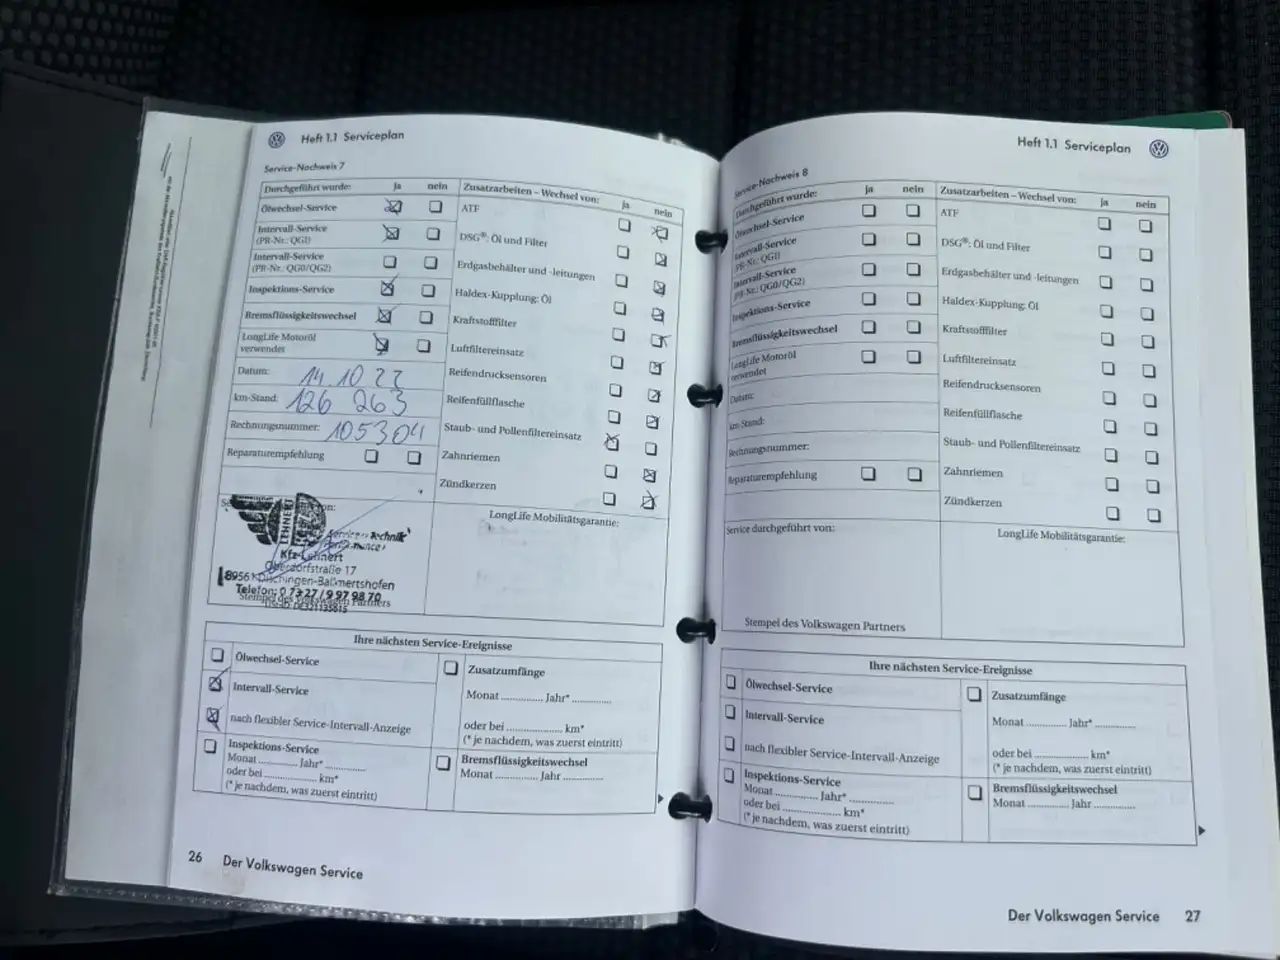 Heft 1.1 Serviceplan
Service-Nachweis 7
Durchgeführt wurde: ja nein
Ölwechsel-Service
Intervall-Service
(PR-Nr.: QG1)
Intervall-Service
(PR-Nr.: QG0/QG2)
Inspektions-Service
Bremsflüssigkeitswechsel
LongLife Motoröl
verwendet
Datum: 14.10 22
km-Stand: 126 263
Rechnungsnummer: 105304
Reparaturempfehlung
Zusatzarbeiten – Wechsel von: ja nein
ATF
DSG®: Öl und Filter
Erdgasbehälter und -leitungen
Haldex-Kupplung: Öl
Kraftstofffilter
Luftfiltereinsatz
Reifendrucksensoren
Reifenfüllflasche
Staub- und Pollenfiltereinsatz
Zahnriemen
Zündkerzen
von:
LEHNERT
Service Technik
Kfz-Lehnert
Oberdorfstraße 17
Telefon: 0 73 27 / 9 97 98 70
Stempel des Volkswagen Partners
LongLife Mobilitätsgarantie:
Ihre nächsten Service-Ereignisse
Ölwechsel-Service
Intervall-Service
nach flexibler Service-Intervall-Anzeige
Inspektions-Service
Monat ............ Jahr* ............
oder bei ........................ km*
(* je nachdem, was zuerst eintritt)
Zusatzumfänge
Monat ............ Jahr* ............
oder bei ........................ km*
(* je nachdem, was zuerst eintritt)
Bremsflüssigkeitswechsel
Monat ............ Jahr ............
26 Der Volkswagen Service
Heft 1.1 Serviceplan
Service-Nachweis 8
Durchgeführt wurde: ja nein
Ölwechsel-Service
Intervall-Service
(PR-Nr.: QG1)
Intervall-Service
(PR-Nr.: QG0/QG2)
Inspektions-Service
Bremsflüssigkeitswechsel
LongLife Motoröl
verwendet
Datum:
km-Stand:
Rechnungsnummer:
Reparaturempfehlung
Zusatzarbeiten – Wechsel von: ja nein
ATF
DSG®: Öl und Filter
Erdgasbehälter und -leitungen
Haldex-Kupplung: Öl
Kraftstofffilter
Luftfiltereinsatz
Reifendrucksensoren
Reifenfüllflasche
Staub- und Pollenfiltereinsatz
Zahnriemen
Zündkerzen
Service durchgeführt von:
Stempel des Volkswagen Partners
LongLife Mobilitätsgarantie:
Ihre nächsten Service-Ereignisse
Ölwechsel-Service
Intervall-Service
nach flexibler Service-Intervall-Anzeige
Inspektions-Service
Monat ............ Jahr* ............
oder bei ........................ km*
(* je nachdem, was zuerst eintritt)
Zusatzumfänge
Monat ............ Jahr* ............
oder bei ........................ km*
(* je nachdem, was zuerst eintritt)
Bremsflüssigkeitswechsel
Monat ............ Jahr ............
Der Volkswagen Service 27